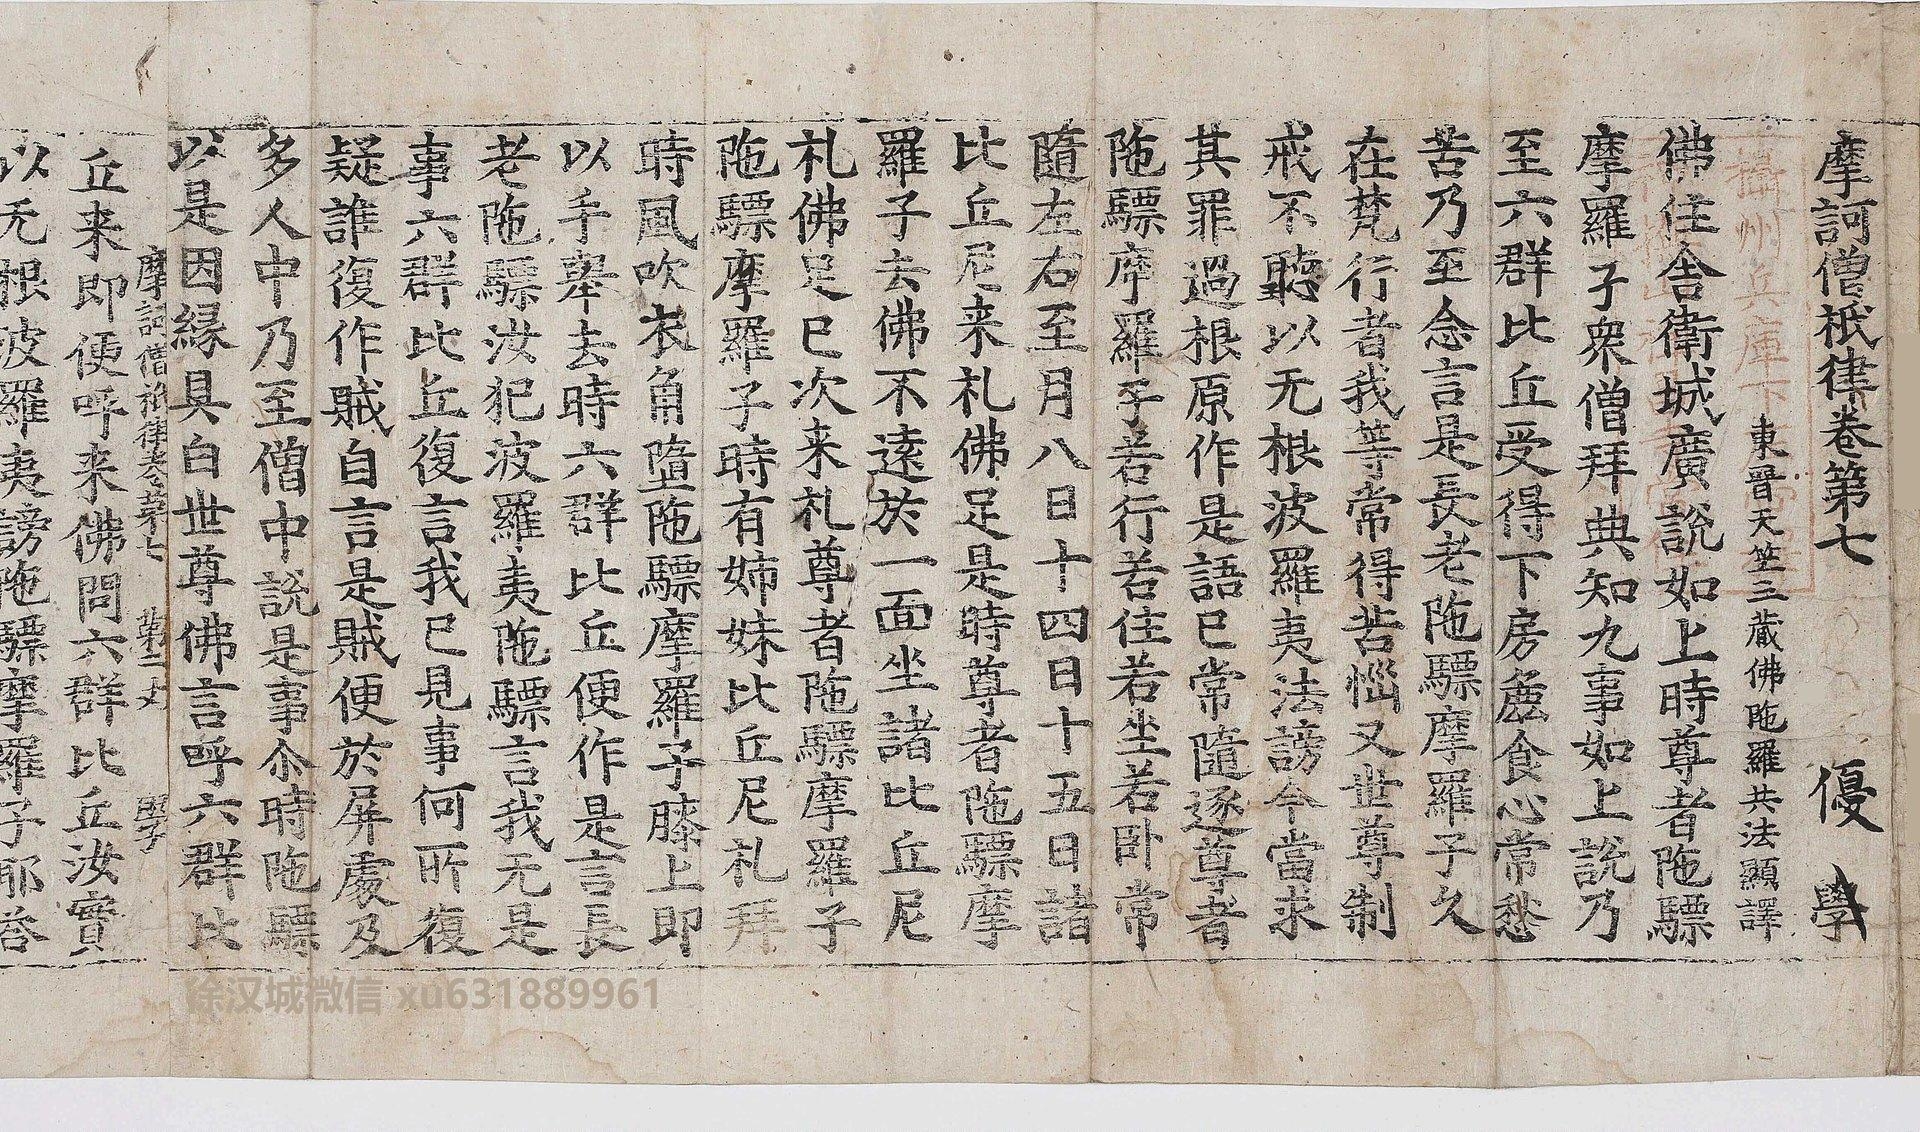 摩訶僧祇律卷第七 優 學
東晉天竺三藏佛陁羅共法顯譯
佛住舍衛城廣說如上時尊者陁驃
摩羅子衆僧拜典知九事如上說乃
至六群比丘受得下房麁食心常愁
苦乃至念言是長老陁驃摩羅子久
在梵行者我等常得苦惱又世尊制
戒不聽以无根波羅夷法謗今當求
其罪過根原作是語已常隨逐尊者
陁驃摩羅子若行若住若坐若卧常
隨左右至月八日十四日十五日諸
比丘尼来礼佛足是時尊者陁驃摩
羅子去佛不遠於一面坐諸比丘尼
礼佛足已次来礼尊者陁驃摩羅子
陁驃摩羅子時有姊妹比丘尼礼拜
時風吹衣角墮陁驃摩羅子膝上即
以手舉去時六群比丘便作是言長
老陁驃汝犯波羅夷陁驃言我无是
事六群比丘復言我已見事何所復
疑誰復作賊自言是賊便於屏處及
多人中乃至僧中說是事尒時陁驃
以是因緣具白世尊佛言呼六群比
摩訶僧祇律卷第七 第二丈
丘来即便呼来佛問六群比丘汝實
以无根波羅夷謗陁驃摩羅子耶答
攝州兵庫下
徐汉城微信 xu631889961